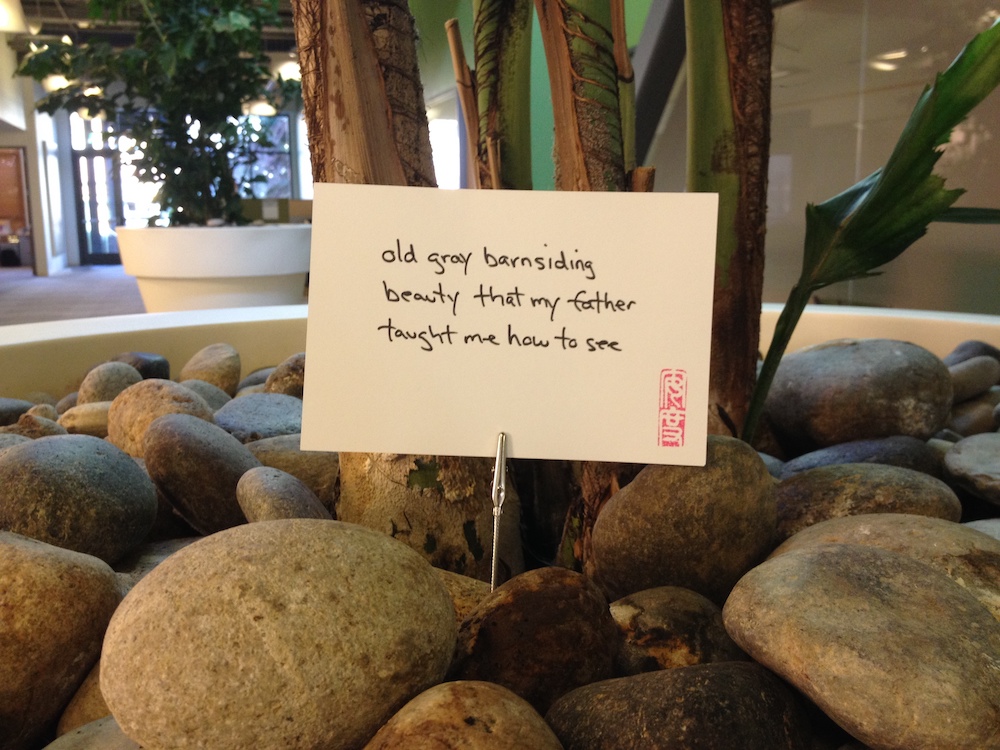 old gray barnsiding
beauty that my father
taught me how to see